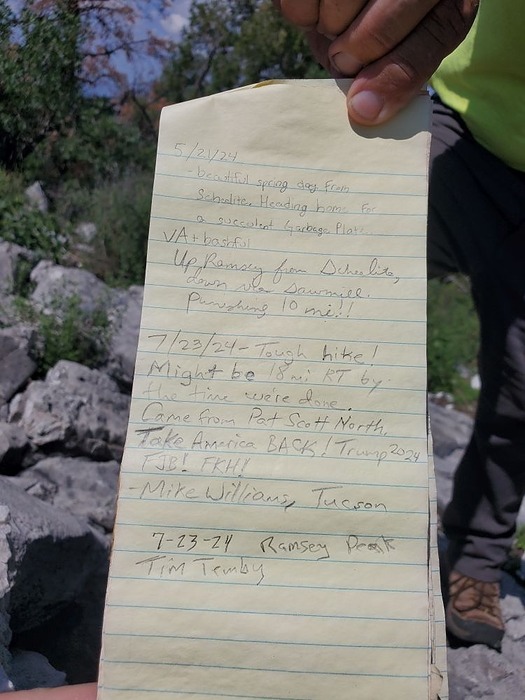 5/21/24
- beautiful spring day from
Scheelite. Heading home for
a succulent Garbage Plate
VA + bashful
Up Ramsey from Scheelite,
down via Sawmill.
Punishing 10 mi!!
7/23/24 - Tough hike!
Might be 18 mi RT by
the time we're done.
Came from Pat Scott North.
Take America BACK! Trump 2024
FJB! FKH!
- Mike Williams, Tucson
7-23-24 Ramsey Peak
Tim Temby